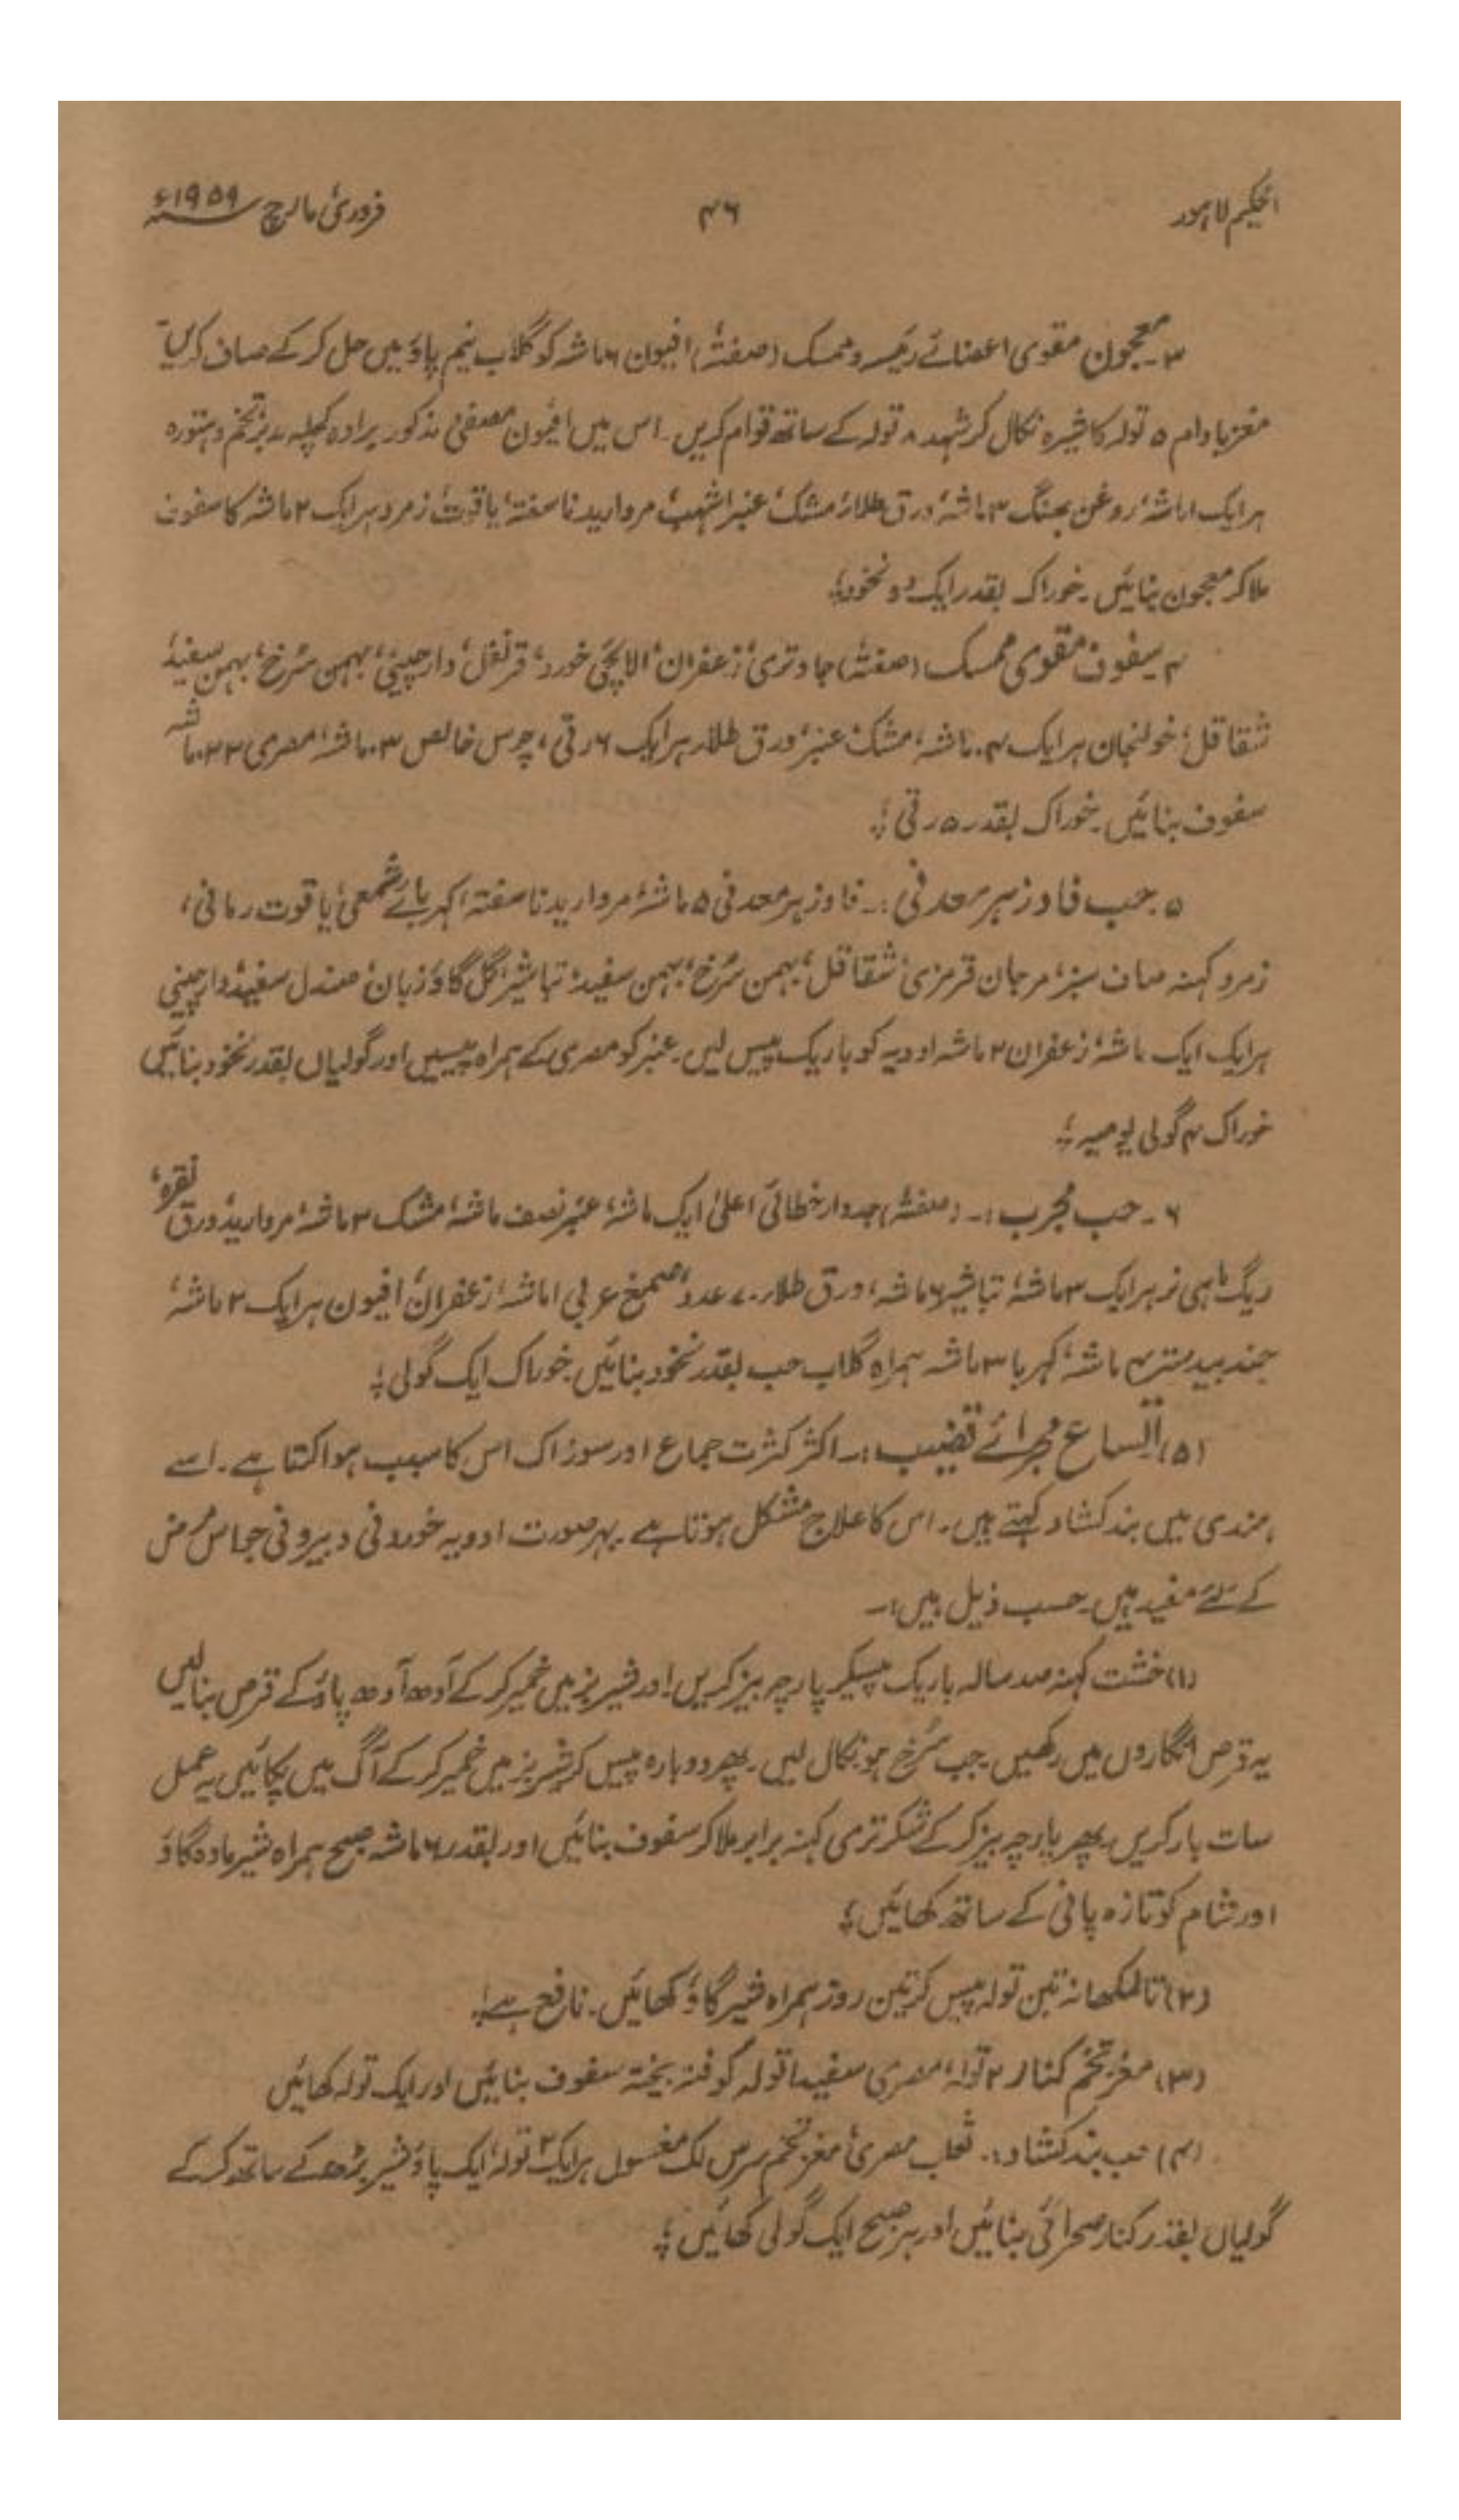 الحکیم لاہور ۴۶ فروری مارچ ۱۹۵۹ء
۳۔ معجون مقوی اعضائے رئیسہ و ممسک (صفتہٗ) افیون ۶ ماشہ کو گلاب نیم پاؤ میں حل کر کے صاف کریں
مغز بادام ۵ تولہ کا شیرہ نکال کر شہد ۸ تولہ کے ساتھ قوام کریں۔ اس میں افیون مصفیٰ مذکور برادہ کچلہ مدبر تخم دہتورہ
ہر ایک ۱ ماشہ، روغن بھنگ ۳ ماشہ، ورق طلاء، مشک، عنبر اشہب، مروارید ناسفتہ، یاقوت، زمرد ہر ایک ۲ ماشہ کا سفوف
ملا کر معجون بنائیں۔ خوراک بقدر ایک دو نخود؛
۴۔ سفوف مقوی ممسک (صفتہٗ) جاوتری، زعفران، الائچی خورد، قرنفل، دارچینی، بہمن سرخ، بہمن سفید،
شقاقل، خولنجان ہر ایک ۴ ماشہ، مشک، عنبر، ورق طلاء ہر ایک ۶ رتی، چرس خالص ۳ ماشہ، مصری ۲۲ ماشہ
سفوف بنائیں۔ خوراک بقدر ۵ رتی؛
۵۔ حب فاوزہر معدنی:۔ فاوزہر معدنی ۵ ماشہ، مروارید ناسفتہ، کہربائے شمعی، یاقوت رمانی،
زمرد کہنہ صاف سبز، مرجان قرمزی، شقاقل، بہمن سرخ، بہمن سفید، تباشیر، گل گاؤزبان، صندل سفید، دارچینی
ہر ایک ایک ماشہ، زعفران ۲ ماشہ ادویہ کو باریک پیس لیں۔ عنبر کو مصری کے ہمراہ پیسیں اور گولیاں بقدر نخود بنائیں
خوراک ۴ گولی یومیہ؛
۶۔ حب مجرب:۔ (صفتہٗ) جدوار خطائی اعلیٰ ایک ماشہ، عنبر نصف ماشہ، مشک ۳ ماشہ، مروارید، ورق نقرہ،
ریگ ماہی نر ہر ایک ۳ ماشہ، تباشیر ۶ ماشہ، ورق طلاء ۷۰ عدد، صمغ عربی ۱ ماشہ، زعفران، افیون ہر ایک ۲ ماشہ،
جند بیدستر ۴ ماشہ، کہربا ۳ ماشہ ہمراہ گلاب حب بقدر نخود بنائیں۔ خوراک ایک گولی؛
(۵) اتساع مجرائے قضیب:۔ اکثر کثرت جماع اور سوزاک اس کا سبب ہوا کتا ہے۔ اسے
ہندی میں بند کشاد کہتے ہیں۔ اس کا علاج مشکل ہوتا ہے۔ بہر صورت ادویہ خوردنی و بیرونی جو اس مرض
کے لئے مفید ہیں۔ حسب ذیل ہیں:۔
(۱) خشت کہنہ صد سالہ باریک پیسکر پارچہ بیز کریں اور شیر بز میں خمیر کر کے آدھ آدھ پاؤ کے قرص بنا لیں
یہ قرص انگاروں میں رکھیں جب سرخ ہو نکال لیں۔ پھر دوبارہ پیس کر شیر بز میں خمیر کر کے آگ میں پکائیں یہ عمل
سات بار کریں، پھر پارچہ بیز کر کے شکر تزمی کہنہ برابر ملا کر سفوف بنائیں اور بقدر ۶ ماشہ صبح ہمراہ شیر مادہ گاؤ
اور شام کو تازہ پانی کے ساتھ کھائیں؛
(۲) تالمکھانہ تین تولہ پیس کر تین روز ہمراہ شیر گاؤ کھائیں۔ نافع ہے؛
(۳) مغز تخم کنار ۲ تولہ، مصری سفید ۱ تولہ کوفتہ بیختہ سفوف بنائیں اور ایک تولہ کھائیں
(۴) حب بند کشاد:۔ ثعلب مصری، مغز تخم سرس، لک مغسول ہر ایک ۲ تولہ، ایک پاؤ شیر بڑھ کے ساتھ کر کے
گولیاں بقدر کنار صحرائی بنائیں اور ہر صبح ایک گولی کھائیں؛